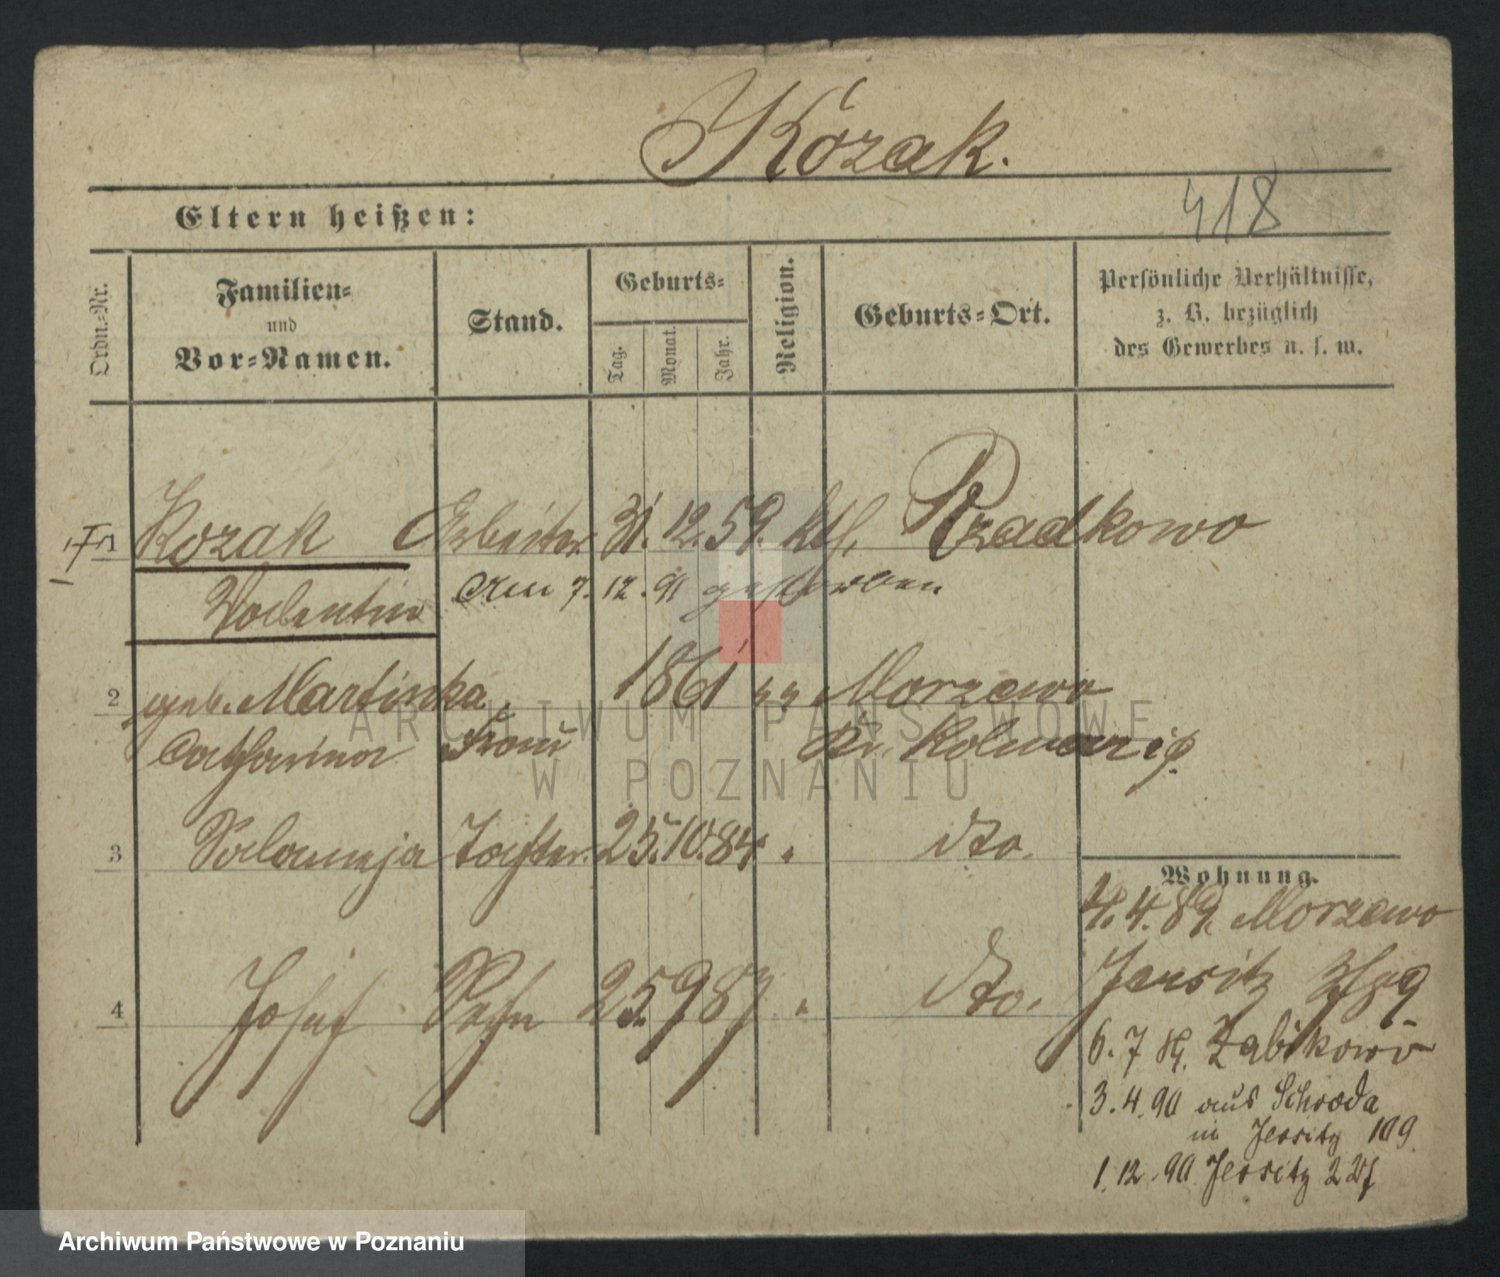 Kozak.
418
Eltern heißen:
Ordn.-Nr.
Familien-
und
Vor-Namen.
Stand.
Geburts-
Tag.
Monat.
Jahr.
Religion.
Geburts-Ort.
Persönliche Verhältnisse,
z. B. bezüglich
des Gewerbes u. s. w.
1 Kozak Arbeiter 31. 12. 59. kth. Rzadkowo
Valentin am 7. 12. 91 gestorben
2 geb. Martinka 1861 Morzewo
Catharina Frau Kr. Kolmar i/p.
3 Salomeja Tochter 25. 10. 84 " dto.
4 Josef Sohn 25 9 87 " dto.
Wohnung.
4. 4. 89. Morzewo
Jersitz
6. 7 89. Zabikowo
3. 4. 90 aus Schroda
in Jersitz 109
1. 12. 90 Jersitz
ARCHIWUM PAŃSTWOWE
W POZNANIU
Archiwum Państwowe w Poznaniu